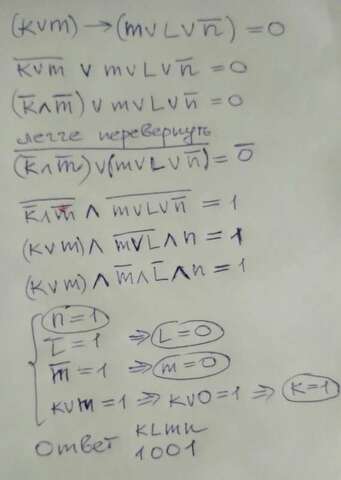 (K∨m) → (m∨L∨n̅) = 0
K̅∨̅m̅ ∨ m∨L∨n̅ = 0
(K̅∧m̅) ∨ m∨L∨n̅ = 0
легче перевернуть
(̅K̅∧̅m̅)̅∨̅(̅m̅∨̅L̅∨̅n̅)̅ = 0̅
K̅∧̅m̅ ∧ m̅∨̅L̅∨̅n̅ = 1
(K∨m) ∧ m̅∨̅L̅ ∧ n = 1
(K∨m) ∧ m̅ ∧ L̅ ∧ n = 1
n = 1
L̅ = 1 ⇒ L = 0
m̅ = 1 ⇒ m = 0
K∨m = 1 ⇒ K∨0 = 1 ⇒ K = 1
Ответ KLmn
1001